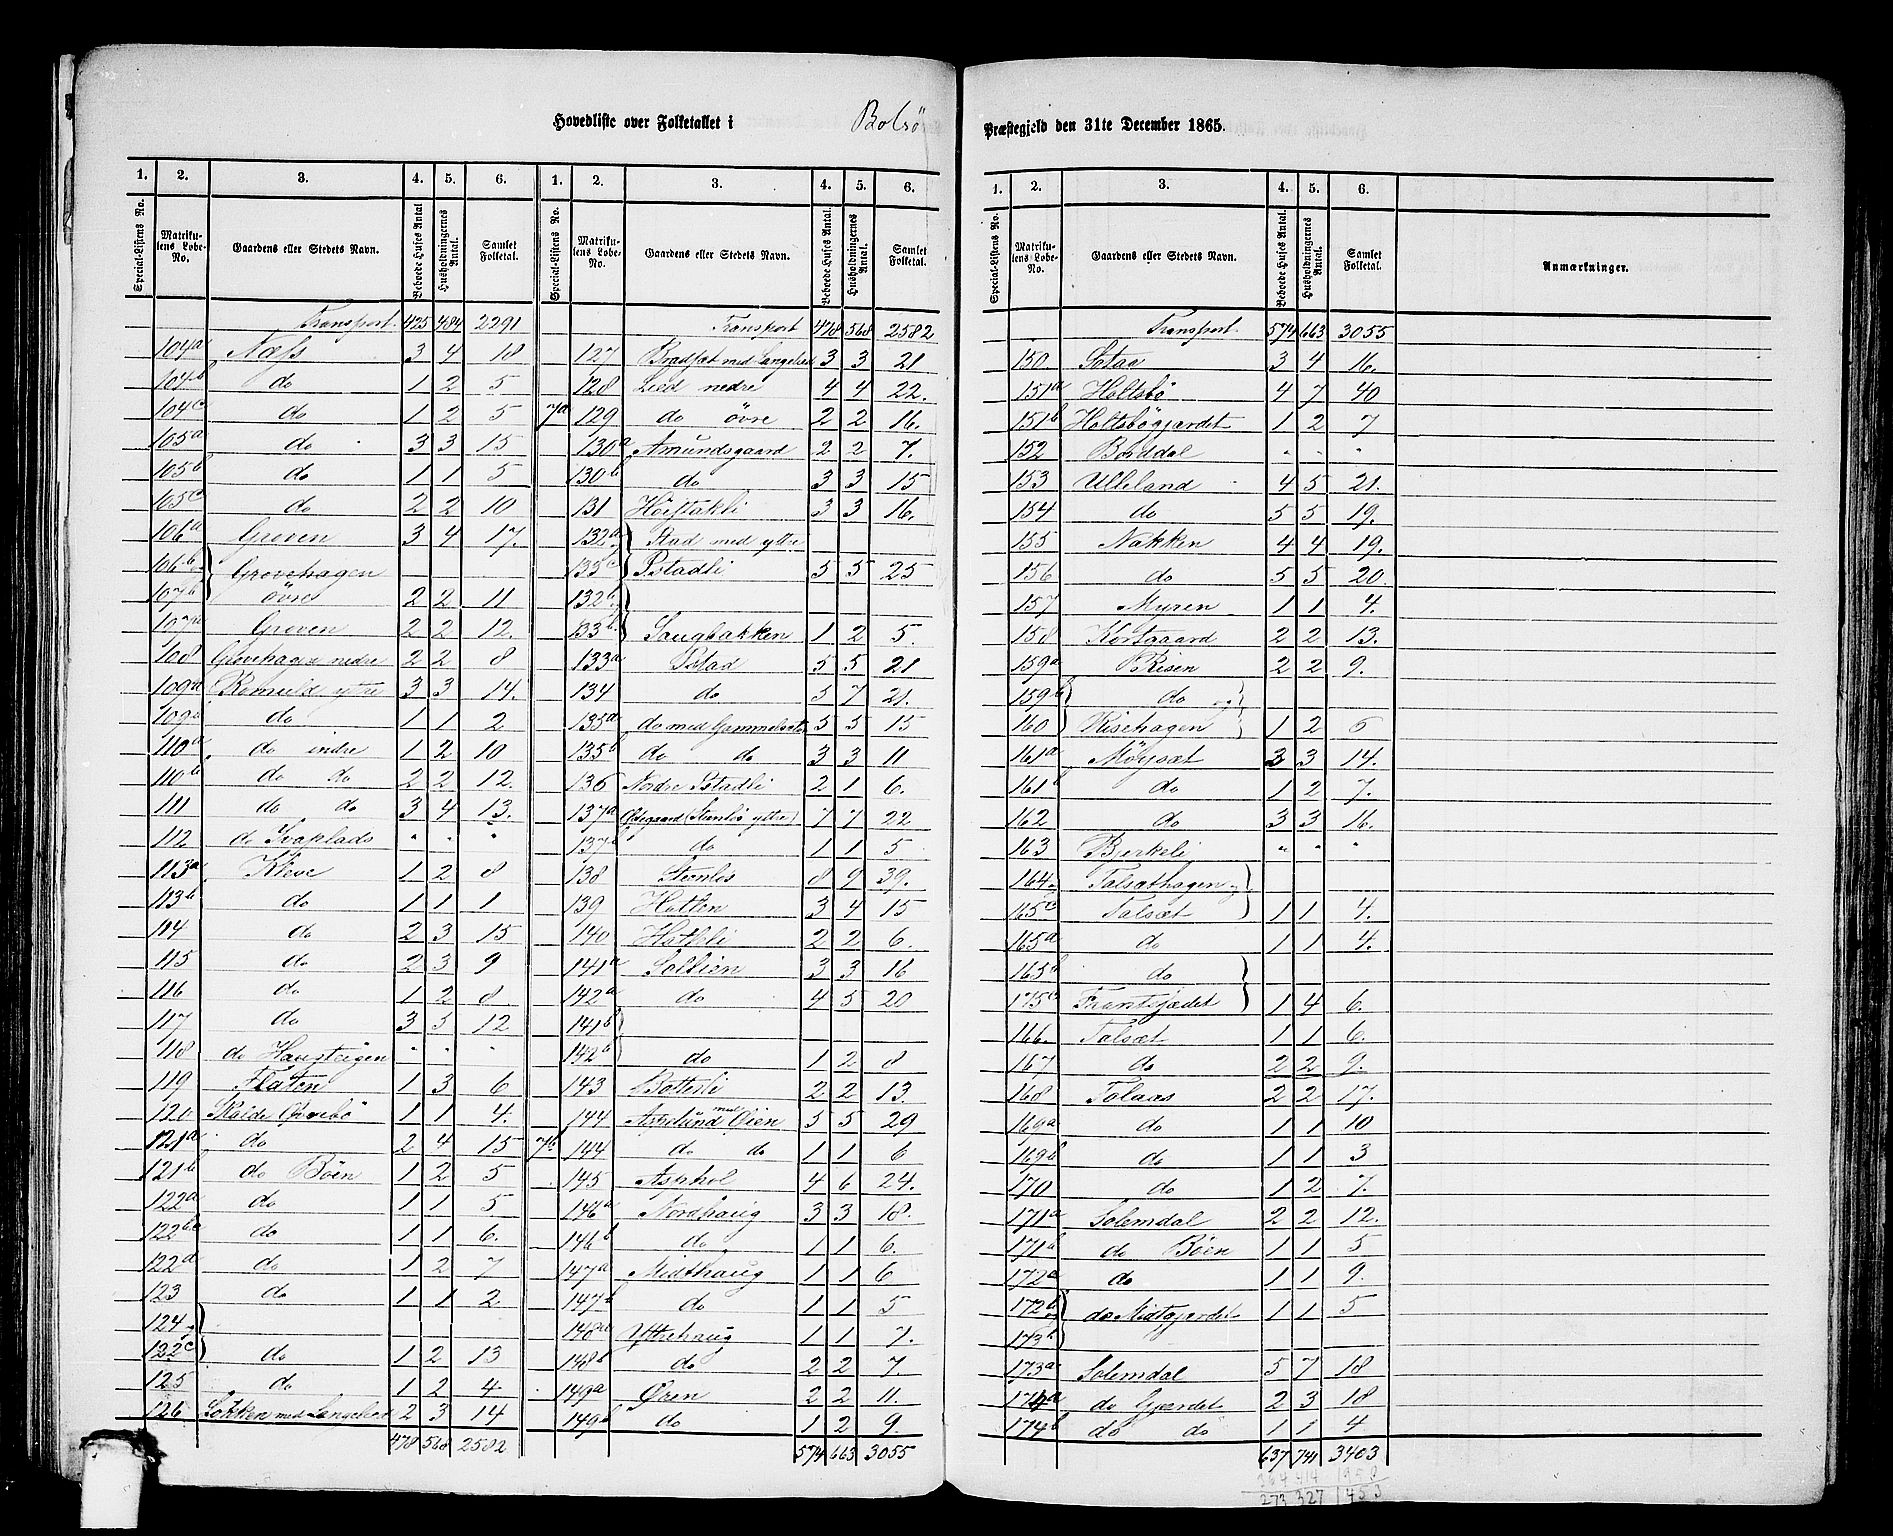 Hovedliste over Folketallet i Bolsö Præstegjeld den 31te December 1865.
1. 2. 3. 4. 5. 6.
Special-Listens No. Matrikulens Løbe-No. Gaardens eller Stedets Navn. Beboede Huses Antal Husholdningernes Antal. Samlet Folketal.
Transport. 425 484 2291
104a Næss 3 4 18
104b do 1 2 5
104c do 1 2 5
105a do 3 3 15
105b do 1 1 5
105c do 2 2 10
106a Groven 3 4 17.
106b Grovehagen
107b övre 2 2 11
107a Groven 2 2 12.
108 Grovehagen nedre 2 2 8
109a Romuld ytre 3 3 14.
109 do 1 1 2
110a do indre 1 2 10
110b do do 2 2 12.
111 do do 3 4 13.
112 do Svaplads " " "
113a Kleve 1 2 8
113b do 1 1 1
114 do 2 3 15
115 do 2 3 9
116 do 1 2 8
117 do 3 3 12
118 do Hausteigen " " "
119 Flaten 1 3 6
120 Skalde 1 1 4.
121a do 2 4 15
121b do Böen 1 2 5
122a do 1 1 5
122b do 1 1 6.
122d do 1 2 7
123 do 1 1 2
124 og
122c do 1 2 13
125 do 1 2 4
126 med 2 3 14
478 568 2582
1. 2. 3. 4. 5. 6.
Special-Listens No. Matrikulens Løbe-No. Gaardens eller Stedets Navn. Beboede Huses Antal. Husholdningernes Antal. Samlet Folketal.
Transport 478 568 2582
127 med 3 3 21
128 Lied nedre 4 4 22.
7a 129 do övre 2 2 16.
130a Amundsgaard 2 2 7.
130b do 3 3 15
131 Höistakli 3 3 16.
132a Stad med ytre
133c Istadli 5 5 25
132b
133b Saugbakken 1 2 5.
133a Istad 5 5 21
134 do 5 7 21.
135a do med Gammelsæter 5 5 15
135b do do 3 3 11
136 Nordre Istadli 2 1 6.
137a Ødegaard (Stenlö ytre) 7 7 22
137b do 1 1 5
138 8 9 39.
139 Hatlen 3 4 15
140 Hatleli 2 2 6.
141a Solliien 3 3 16
142a do 4 5 20
141b
142b do 1 2 8
143 Bottesli 2 2 13.
144 Asselund med Øien 5 5 29
7b 144 do do 1 1 6
145 Asphol 4 6 24.
146a Nordhaug 3 3 18.
146b do 1 1 6.
147a Midthaug 1 1 6
147b do 1 1 5
148a Yttrehaug 1 1 7.
148b do 2 2 7.
149a Øren 2 2 11.
149b do 1 2 9.
574 663 3055
1. 2. 3. 4. 5. 6.
Special-Listens No. Matrikulens Løbe-No. Gaardens eller Stedets Navn. Beboede Huses Antal. Husholdningernes Antal. Samlet Folketal. Anmærkninger.
Transport. 574 663 3055
150. Sotaa 3 4 16.
151a Holtsbö 4 7 40
151b Holtsbögjærdet 1 2 7
152 Borddal " " "
153 Ulleland 4 5 21.
154 do 5 5 19.
155 Nakken 4 4 19.
156 do 5 5 20.
157 Myren 1 1 4.
158 Kortgaard 2 2 13.
159a Risen 2 2 9.
159b do og
160 Risehagen 1 2 5
161a Möysæt 3 3 14.
161b do 1 2 7.
162 do 3 3 16.
163 Bjerkeli " " "
164. Talsæthagen og
165c Talsæt 1 1 4.
165a do 1 1 4.
165b do
175c 1 4 6.
166. Talsæt 1 1 6.
167 do 2 2 9.
168 Tolaas 2 2 17.
169a do 1 1 10
169b do 1 1 3
170 do 1 2 7.
171a Solemdal 2 2 12.
171b do Böen 1 1 5
172a do 1 1 9.
172b do Midtgjerdet 1 1 5
173b
173a Solemdal 5 7 18
174a do Gjærdet 2 3 18
174b do do 1 1 4
637 741 3403
364 414 1950
273 327 1453